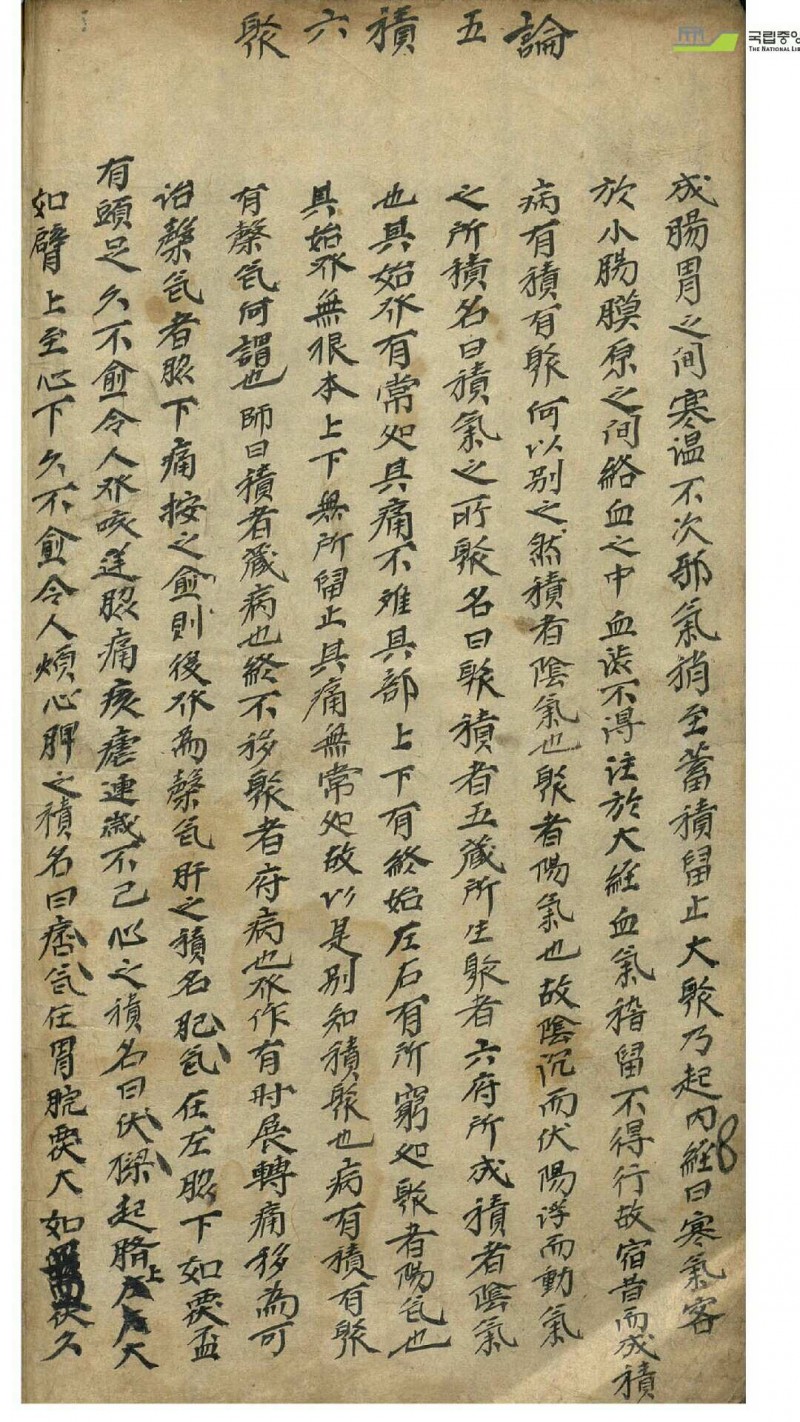 論五積六聚
成腸胃之间寒温不次邪氣稍至蓄積留止大聚乃起内經曰寒氣客
於小腸膜原之间絡血之中血澁不淂注於大經血氣稽留不得行故宿昔而成積
病有積有聚何以别之然積者陰氣也聚者陽氣也故陰沉而伏陽浮而動氣
之所積名曰積氣之所聚名曰聚積者五藏所生聚者六府所成積者陰氣
也其始发有常处其痛不难其部上下有終始左右有所窮处聚者陽気也
其始发無根本上下無所留止其痛無常处故以是别知積聚也病有積有聚
有馨気何謂也師曰積者藏病也終不移聚者府病也发作有时展轉痛移為可
治馨気者脇下痛按之愈則復发為馨気肝之積名肥気在左脇下如覆盃
有頭足久不愈令人发咳逆脇痛痎瘧連歲不已心之積名曰伏樑起臍上大
如臂上至心下久不愈令人煩心脾之積名曰痞気在胃脘覆大如久
8
국립중앙
THE NATIONAL LIB